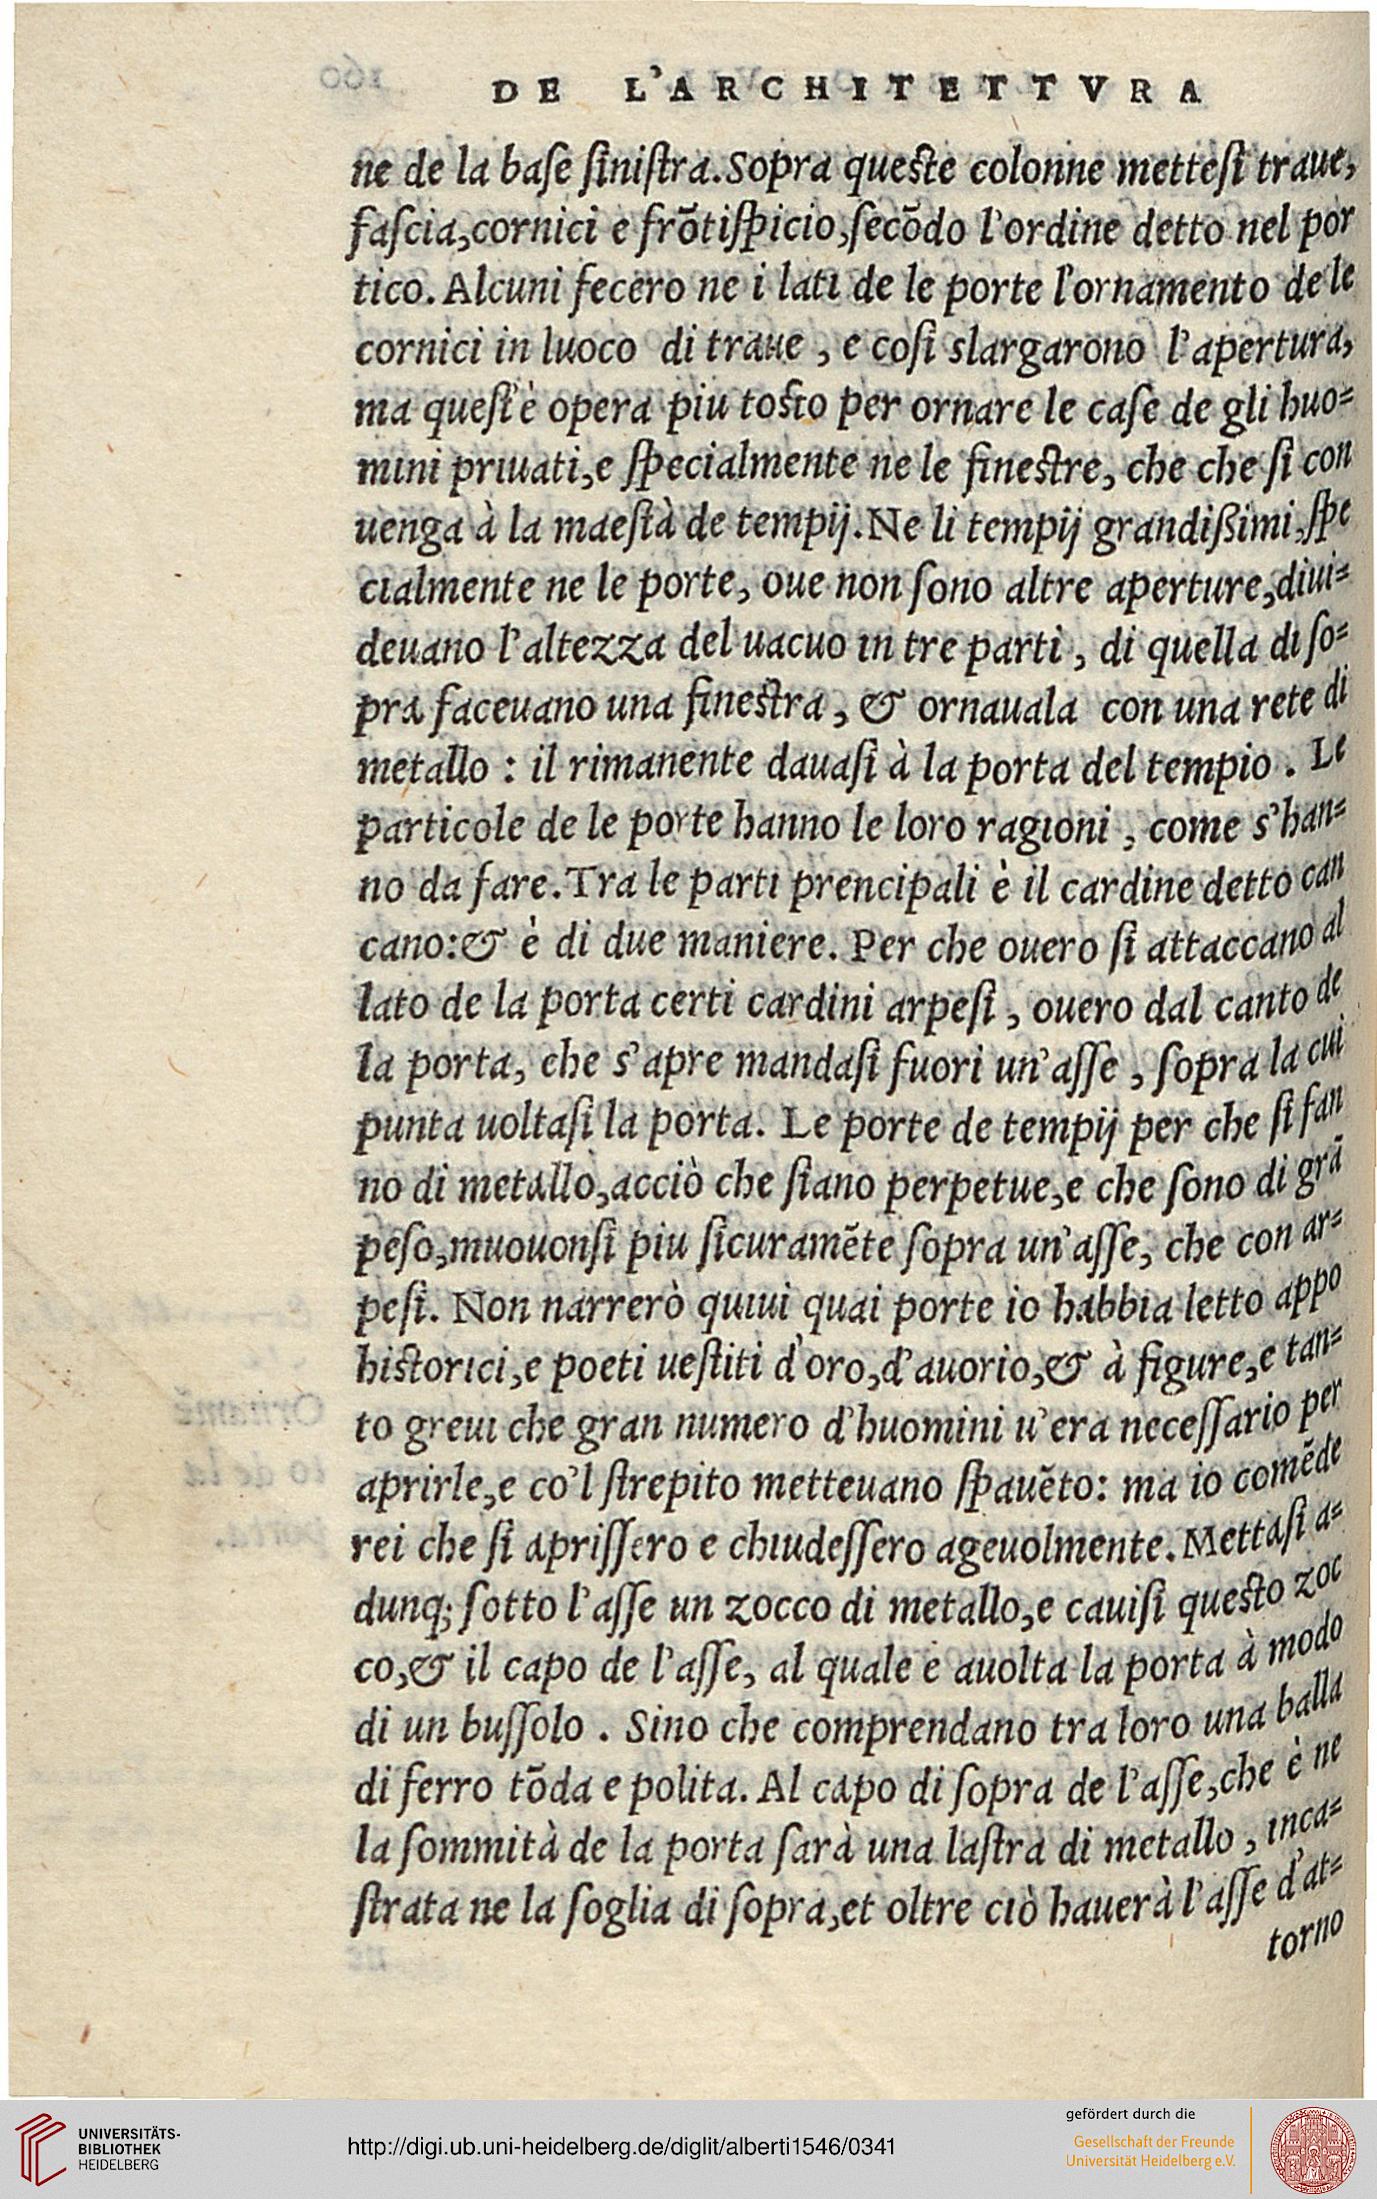 DE L'ARCHITETTVRA
ne de la baſe ſiniſtra. Sopra queſte colonne metteſi traue,
faſcia, cornici e frõtiſpicio, ſecõdo l'ordine detto nel por
tico. Alcuni fecero ne i lati de le porte l'ornamento de le
cornici in luoco di traue, e coſi slargarono l'apertura,
ma queſt'è opera piu toſto per ornare le caſe de gli huo=
mini priuati, e ſpecialmente ne le fineſtre, che che ſi con
uenga à la maeſtà de tempij. Ne li tempij grandißimi, ſpe
cialmente ne le porte, oue non ſono altre aperture, diui=
deuano l'altezza del uacuo in tre parti, di quella di ſo=
pra faceuano una fineſtra, & ornauala con una rete di
metallo : il rimanente dauaſi à la porta del tempio. Le
particole de le porte hanno le loro ragioni, come s'han=
no da fare. Tra le parti prencipali è il cardine detto can
cano: & è di due maniere. Per che ouero ſi attaccano al
lato de la porta certi cardini arpeſi, ouero dal canto de
la porta, che s'apre mandaſi fuori un'aſſe, ſopra la cui
punta uoltaſi la porta. Le porte de tempij per che ſi fan
no di metallo, acciò che ſiano perpetue, e che ſono di grã
peſo, muouonſi piu ſicuramẽte ſopra un'aſſe, che con ar=
peſi. Non narrerò quiui quai porte io habbia letto appo
hiſtorici, e poeti ueſtiti d'oro, d'auorio, & à figure, e tan=
to greui che gran numero d'huomini u'era neceſſario per
aprirle, e co'l ſtrepito metteuano ſpauẽto: ma io comẽde
rei che ſi apriſſero e chiudeſſero ageuolmente. Mettaſi a=
dunq; ſotto l'aſſe un zocco di metallo, e cauiſi queſto zoc
co, & il capo de l'aſſe, al quale è auolta la porta à modo
di un buſſolo. Sino che comprendano tra loro una balla
di ferro tõda e polita. Al capo di ſopra de l'aſſe, che è ne
la ſommità de la porta ſarà una laſtra di metallo, inca=
ſtrata ne la ſoglia di ſopra, et oltre ciò hauerà l'aſſe d'at=
torno
UNIVERSITÄTS-
BIBLIOTHEK
HEIDELBERG
http://digi.ub.uni-heidelberg.de/diglit/alberti1546/0341
gefördert durch die
Gesellschaft der Freunde
Universität Heidelberg e.V.